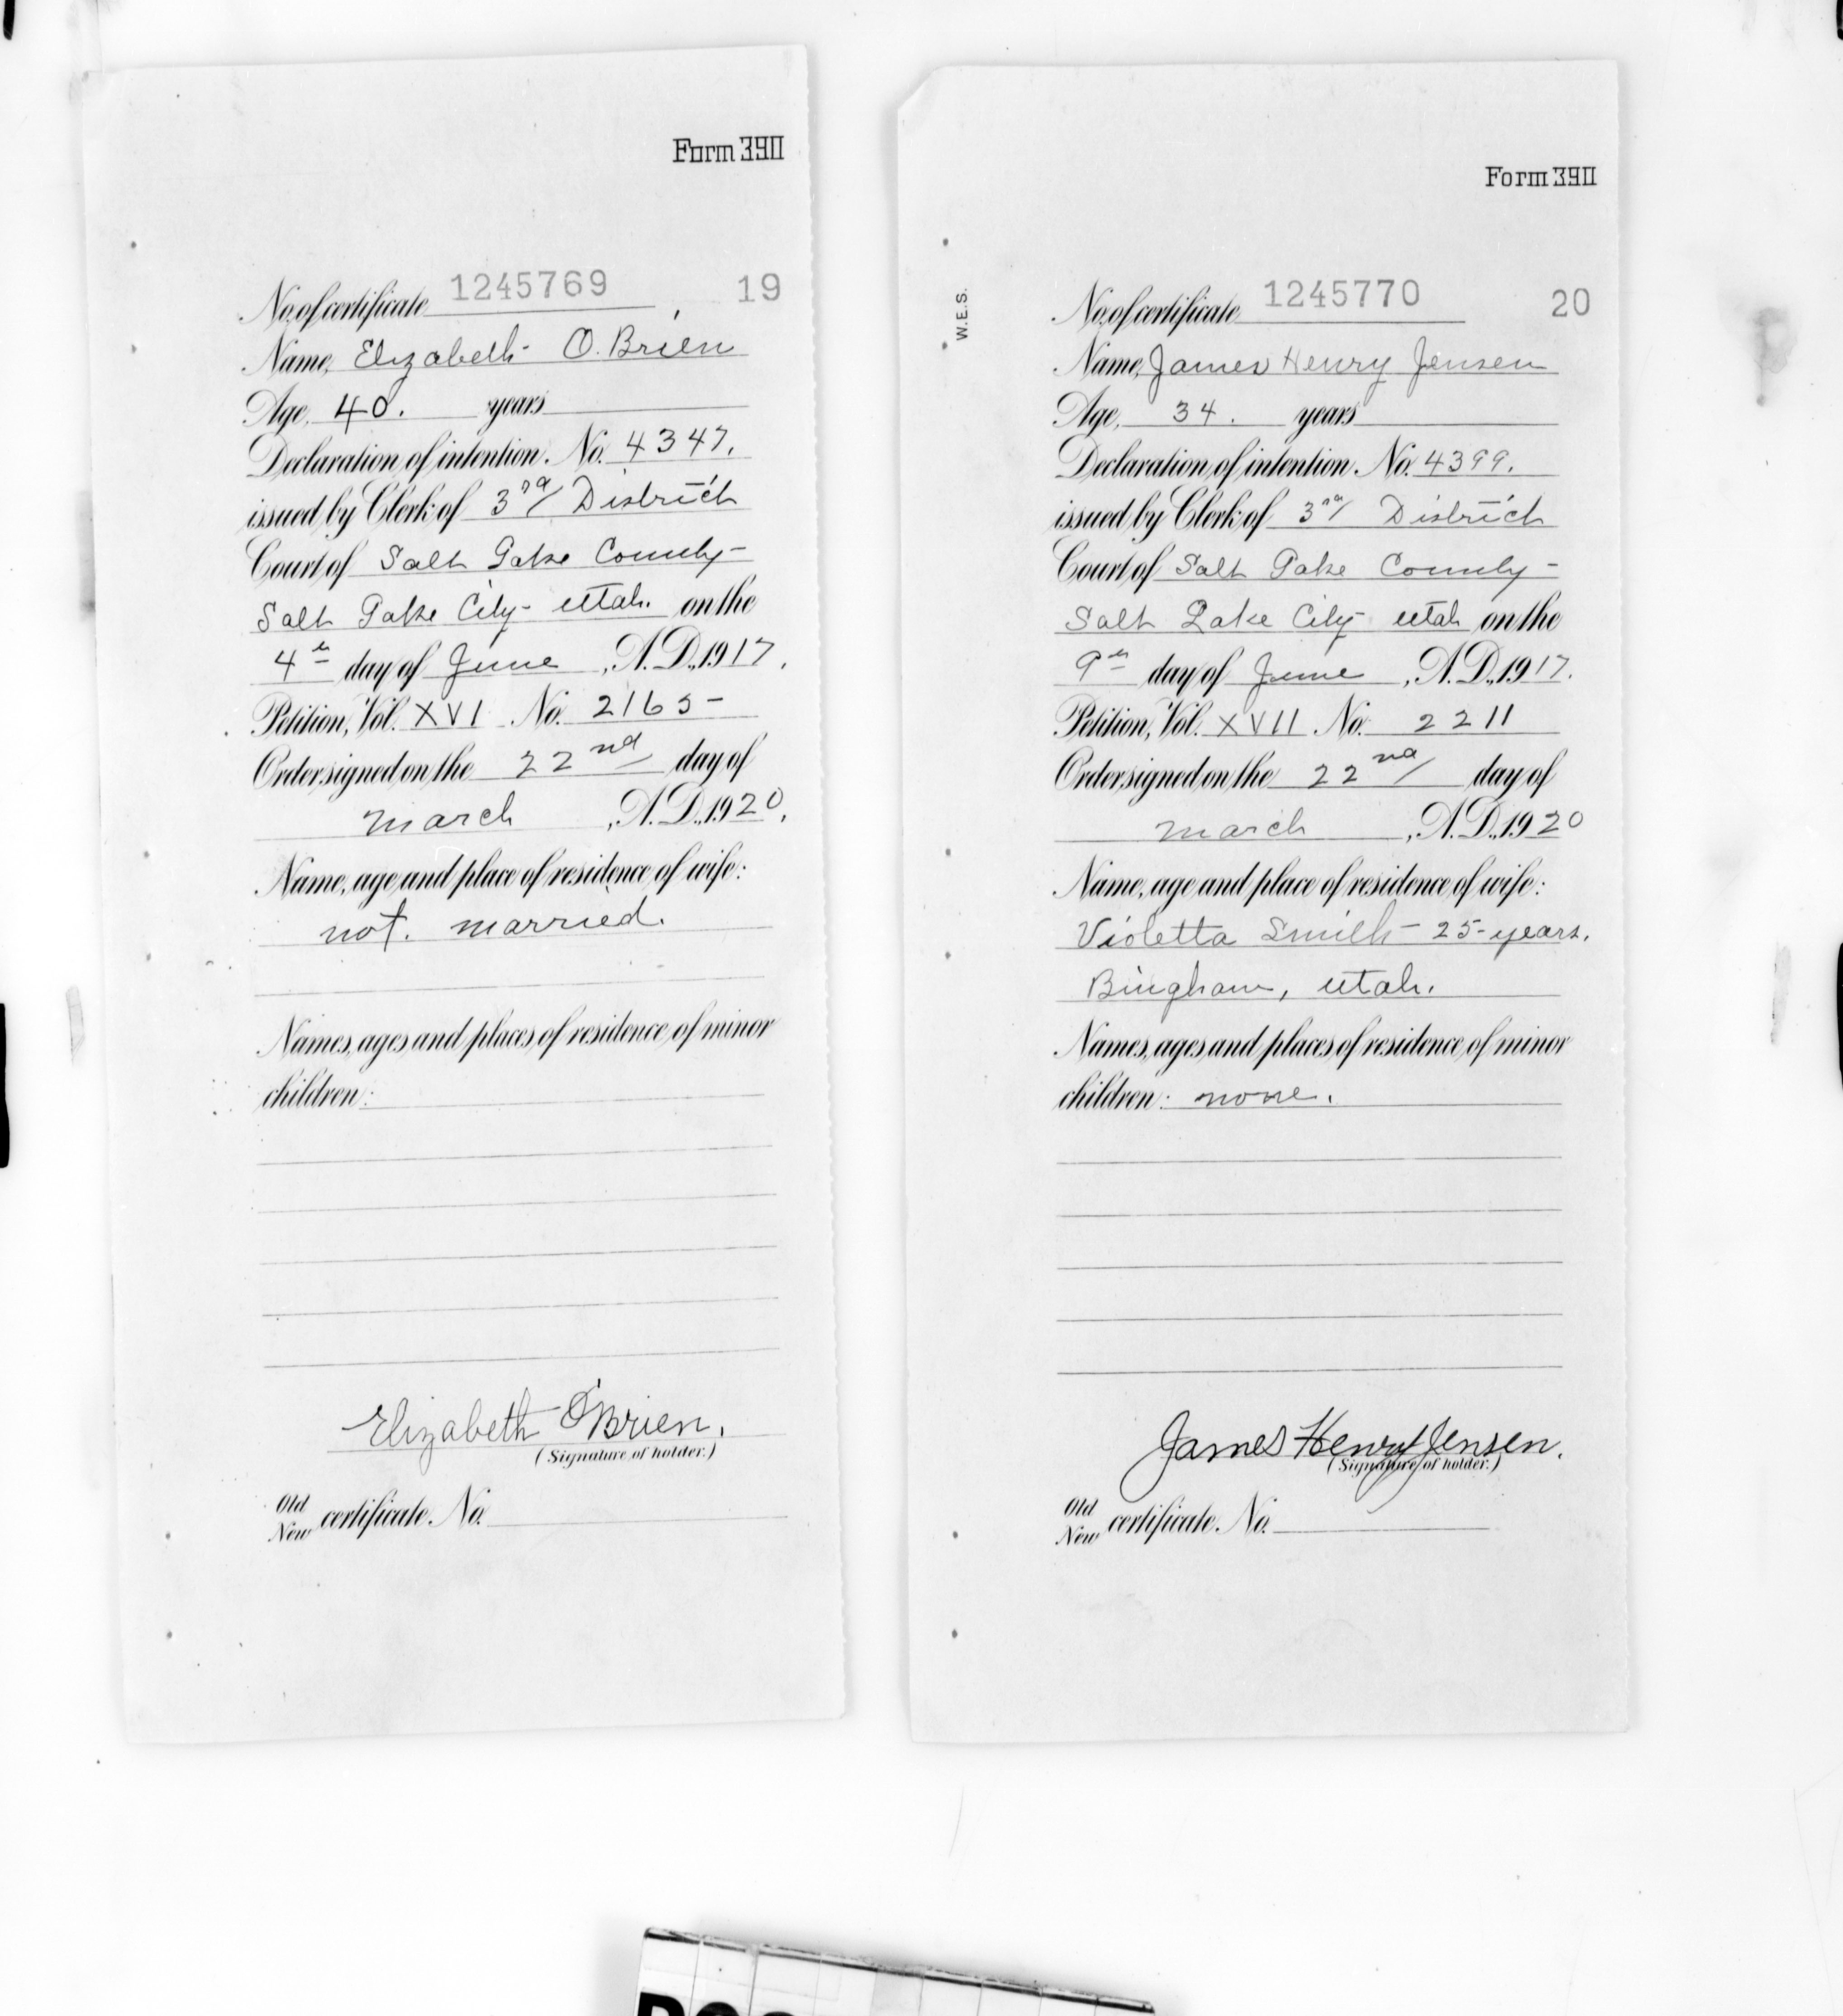 Form 390
No. of certificate 1245769 19
Name, Elizabeth O'Brien
Age, 40. years
Declaration of intention. No. 4347.
issued by Clerk of 3rd District
Court of Salt Lake County-
Salt Lake City- Utah. on the
4th day of June, A.D., 1917.
Petition, Vol. XVI No. 2165-
Order signed on the 22nd day of
March, A.D., 1920.
Name, age and place of residence of wife:
not. married.
Names, ages and places of residence of minor
children:
Elizabeth O'Brien.
(Signature of holder.)
Old
New certificate. No.
Form 390
W.E.S.
No. of certificate 1245770 20
Name, James Henry Jensen
Age, 34. years
Declaration of intention. No. 4399.
issued by Clerk of 3rd District
Court of Salt Lake County-
Salt Lake City- Utah on the
9th day of June, A.D., 1917.
Petition, Vol. XVII No. 2211
Order signed on the 22nd day of
March, A.D., 1920
Name, age and place of residence of wife:
Violetta Smith- 25- years.
Bingham, Utah.
Names, ages and places of residence of minor
children: none.
James Henry Jensen.
(Signature of holder.)
Old
New certificate. No.